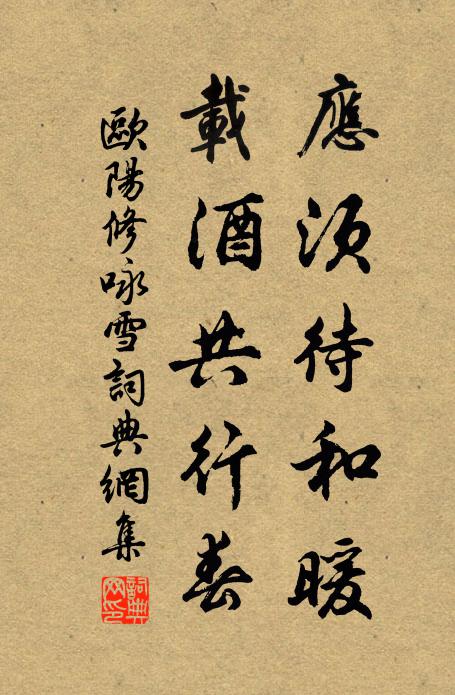 應須待和暖
載酒共行春
歐陽修咏雪詞典網集
詞典網印